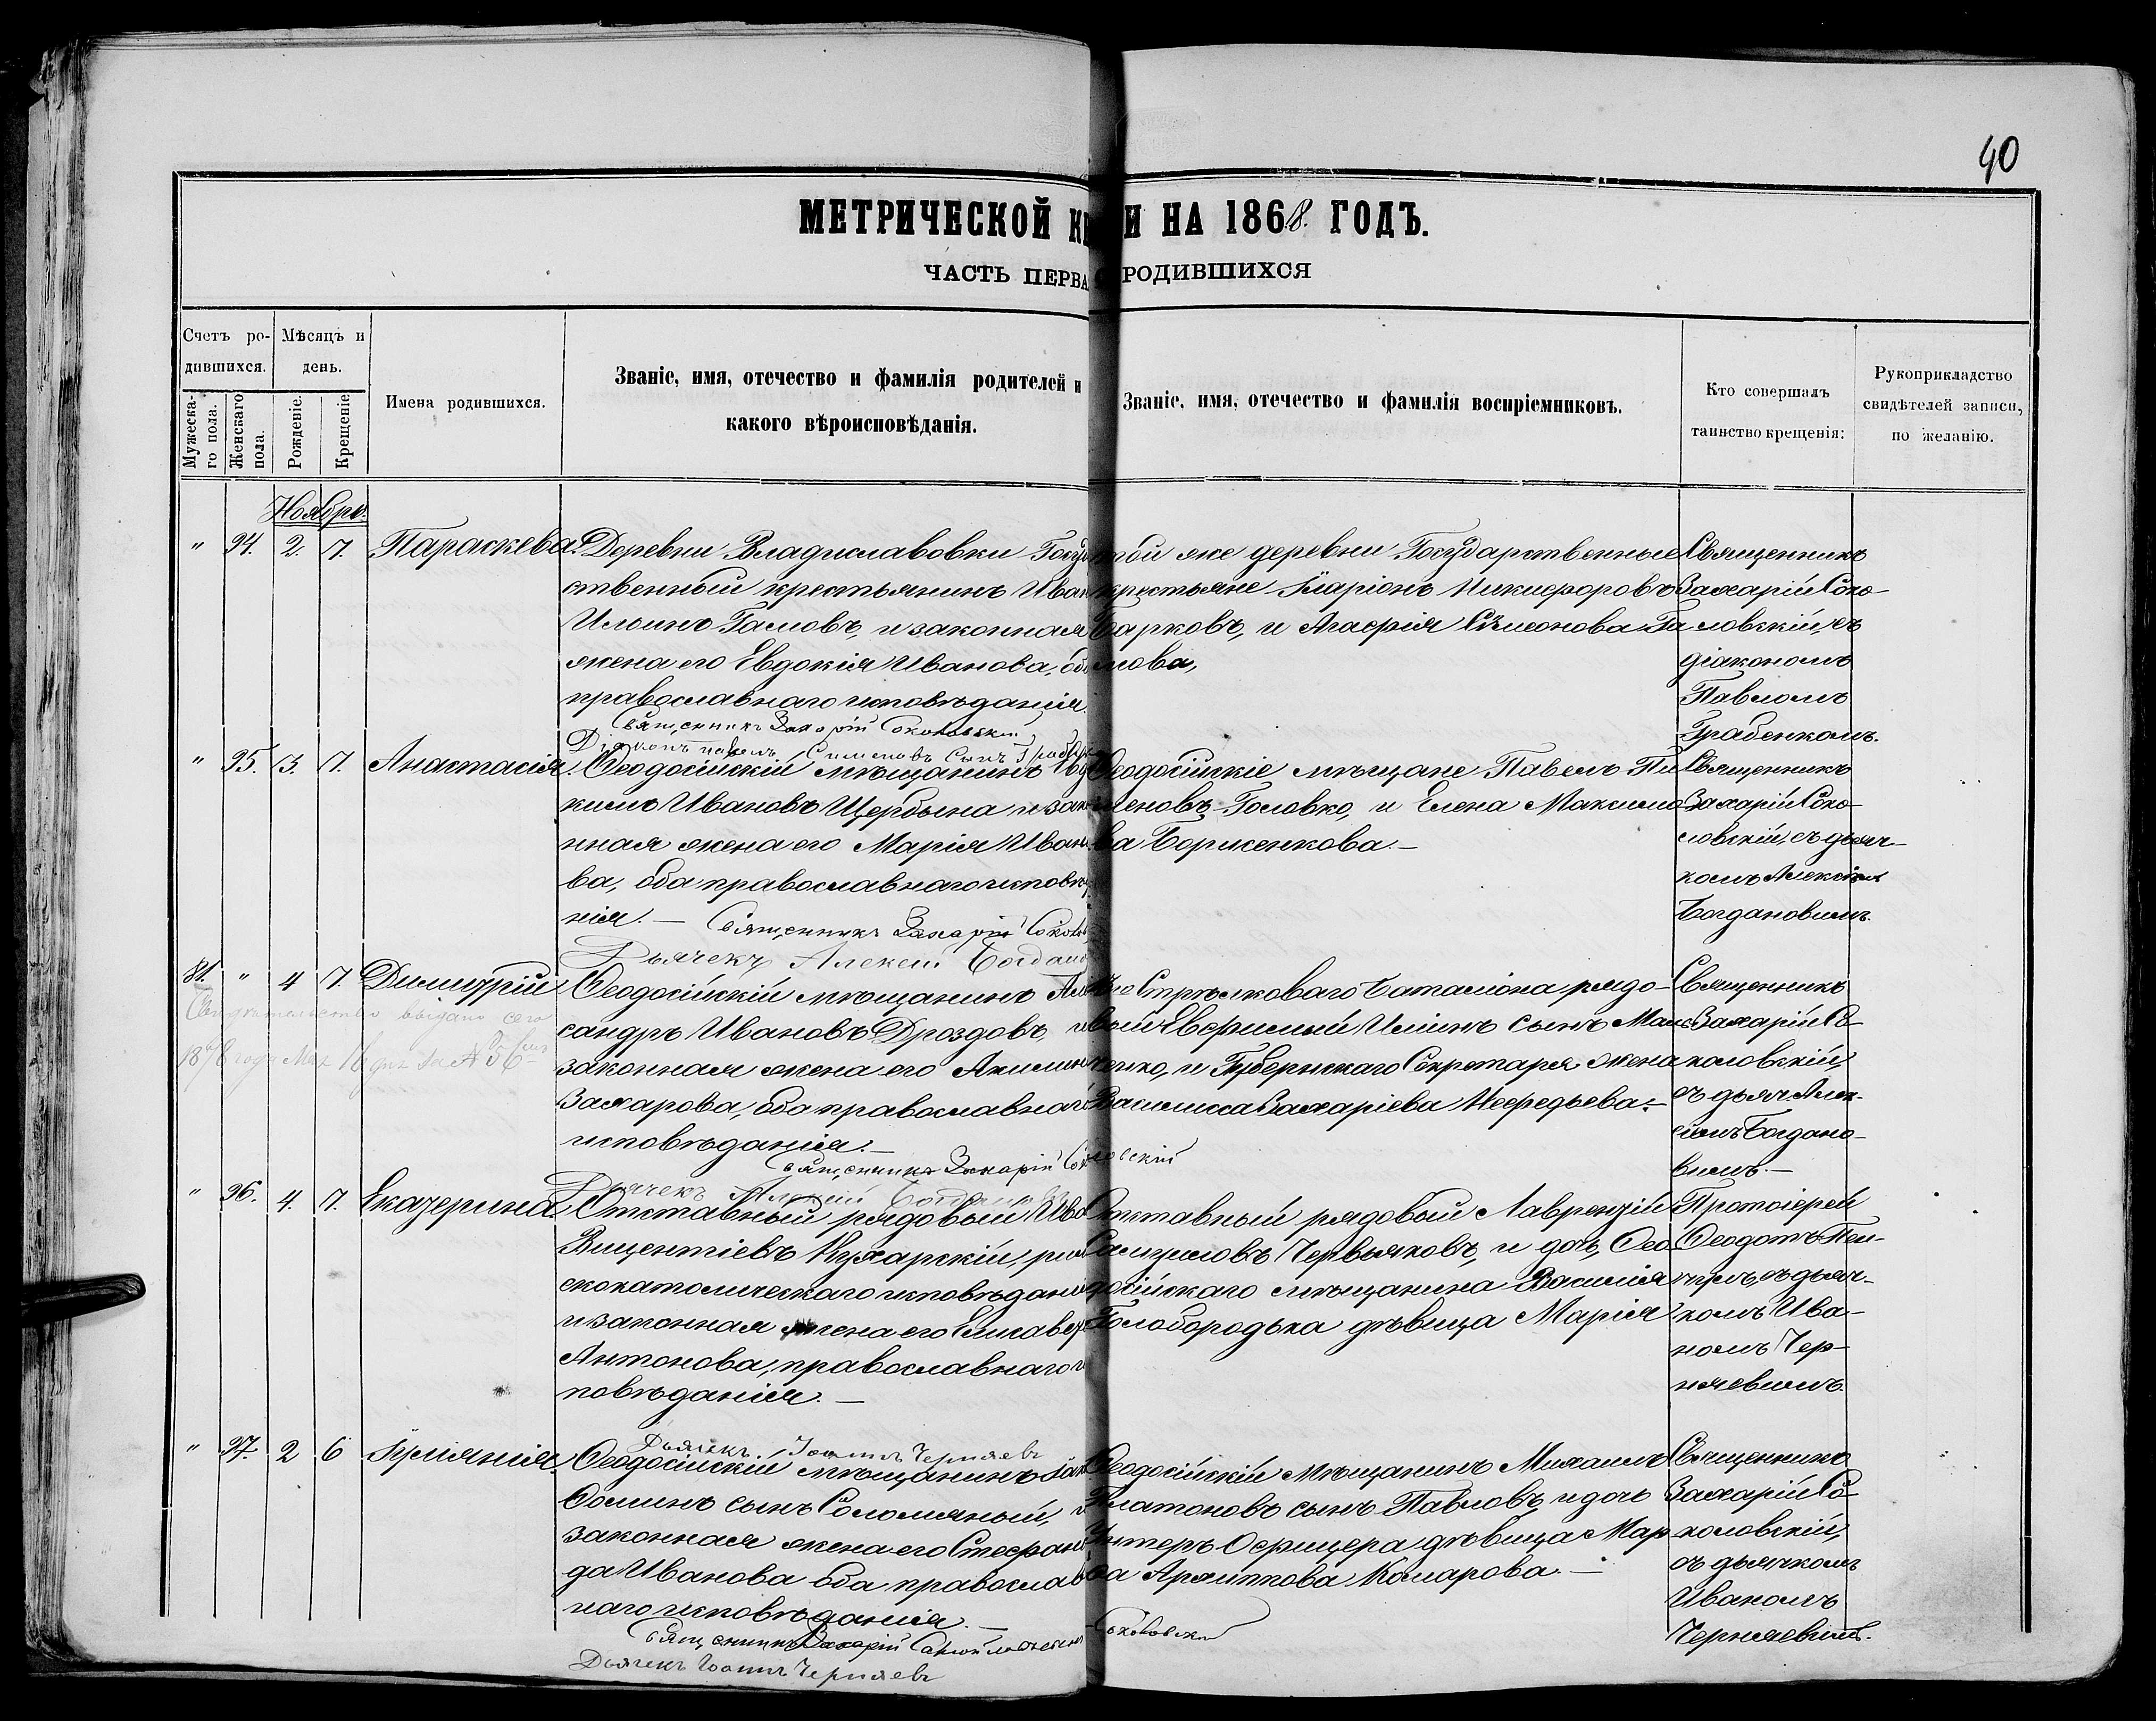 40
МЕТРИЧЕСКОЙ КН И НА 1868. ГОДЪ.
ЧАСТЬ ПЕРВА РОДИВШИХСЯ
Счетъ ро-
дившихся.
Мѣсяцъ и
день.
Мужеска-
го пола.
Женскаго
пола.
Рожденіе.
Крещеніе
Имена родившихся.
Званіе, имя, отечество и фамилія родителей и
какого вѣроисповѣданія.
Званіе, имя, отечество и фамилія воспріемниковъ.
Кто совершалъ
таинство крещенія:
Рукоприкладство
свидѣтелей записи,
по желанію.
Ноябрь.
" 94. 2. 7. Параскева.
Деревни Владиславовки Госуд
ственный крестьянинъ Иван
Ильинъ Гамовъ, и законная
жена его Евдокія Иванова, об
православнаго исповѣданія.
Священникъ Захарій Соколовскій
Діаконъ Павелъ Симеоновъ Сынъ
той же деревни Государственные
крестьяне Иларіонъ Никифоровъ
Барковъ, и Агафія Симеонова Га
мова,
Священникъ
Захарій Соко-
ловскій, съ
діакономъ
Павломъ
Грабенкомъ.
" 95. 3. 7. Анастасія.
Ѳеодосійскій мѣщанинъ
кимъ Ивановъ Щербына и зак
нная жена его Марія Иван
ва, оба православнаго исповѣ
нія. —
Священникъ Захарій Соколов
Дьячекъ Алексѣй Богдан
Ѳеодосійскіе мѣщане Павелъ Пи
меновъ Головко, и Елена Максимо
ва Борисенкова. —
Священникъ
Захарій Соко-
ловскій, съ дьяч-
комъ Алексѣемъ
Богдановымъ.
81. " 4 7. Димитрій
Свидѣтельство выдано сего
1878 года Мая 16 дня за №
Ѳеодосійскій мѣщанинъ Але
сандръ Ивановъ Дроздовъ, и
законная жена его Акилин
Захарова, оба православнаг
исповѣданія. —
Священникъ Захарій Соколовскій
Дьячекъ Алексѣй Богдановъ
Стрѣлковаго Баталіона рядо-
вой Иліинъ сынъ
ченко, и Губернскаго Секретаря жена
Василиса Захаріева —
Священникъ
Захарій Со-
коловскій,
съ дьяч Алек-
сѣемъ Богдано-
вымъ. —
" 96. 4. 7. Екатерина.
Отставный рядовый Ива
Вицентіевъ Кухарскій, рим
скокатолическаго исповѣдані
и законная жена его Елисавет
Антонова, православнаго и
повѣданія. —
Дьячекъ Іоаннъ Черняевъ
Отставный рядовый Лаврентій
Самуиловъ Червьяковъ, и дочь Ѳео
досійскаго мѣщанина Василія
Голобородька дѣвица Марія
Протоіерей
Ѳеодотъ
съ дьяч-
комъ Ива-
номъ Чер-
няевымъ
" 97. 2 6 Іуліанія.
Ѳеодосійскій мѣщанинъ
Ѳоминъ сынъ Соломяный, и
законная жена его Стефани
да Иванова оба православ
наго исповѣданія. —
Священникъ Захарій Соколовскій
Дьячекъ Іоаннъ Черняевъ
Ѳеодосійскій мѣщанинъ Михаилъ
Платоновъ сынъ Павловъ, и дочь
Унтеръ-Офицера дѣвица Мар
ѳа Архиппова Комарова. —
Священникъ
Захарій Со-
коловскій,
съ дьячкомъ
Иваномъ
Черняевымъ.